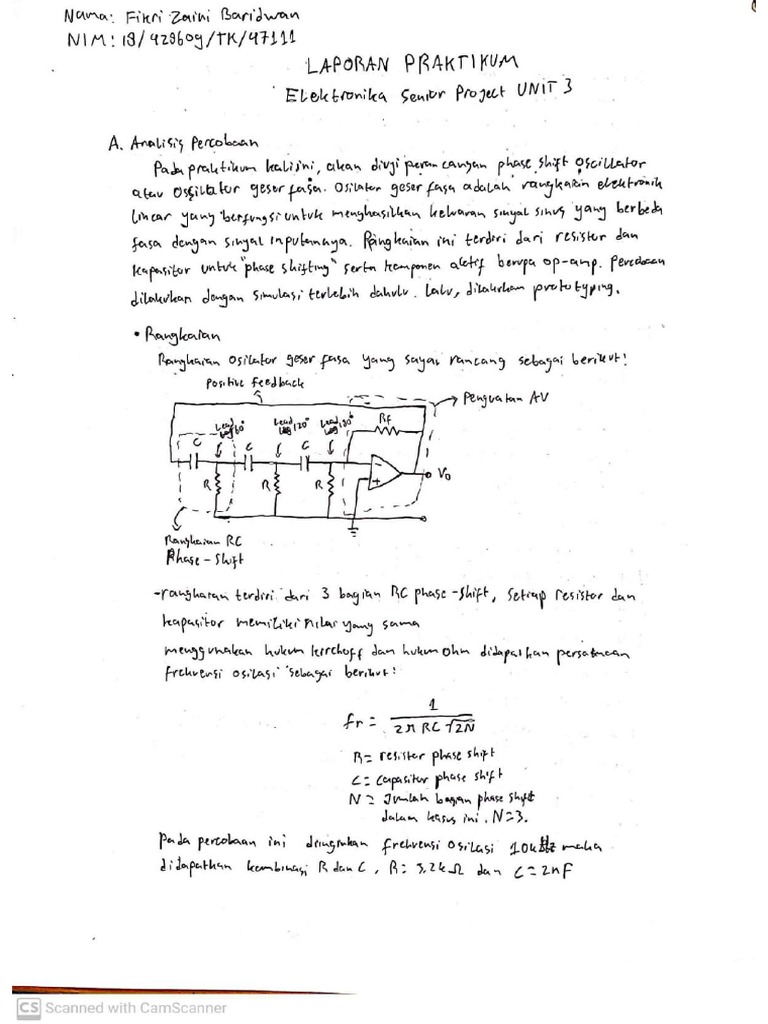 Nama: Fikri Zaini Baridwan
NIM: 18/428609/TK/47111
LAPORAN PRAKTIKUM
Elektronika Senior Project UNIT 3
A. Analisis Percobaan
Pada praktikum kali ini, akan diuji perancangan phase shift oscillator
atau ossilator geser fasa. Osilator geser fasa adalah rangkaian elektronik
linear yang berfungsi untuk menghasilkan keluaran sinyal sinus yang berbeda
fasa dengan sinyal inputannaya. Rangkaian ini terdiri dari resistor dan
kapasitor untuk "phase shifting" serta komponen aktif berupa op-amp. Percobaan
dilakukan dengan simulasi terlebih dahulu. Lalu, dilakukan prototyping.
• Rangkaian
Rangkaian osilator geser fasa yang saya rancang sebagai berikut:
Positive feedback
Penguatan AV
Lead 60°
Lead 120°
Lead 180°
Rf
C
C
C
R
R
R
-
+
Vo
Rangkaian RC
Phase-Shift
-rangkaian terdiri dari 3 bagian RC phase-shift, setiap resistor dan
kapasitor memiliki nilai yang sama
menggunakan hukum kirchoff dan hukum ohm didapatkan persamaan
frekuensi osilasi sebagai berikut:
fr = 1 / 2π RC √2N
R= resistor phase shift
C= capasitor phase shift
N = Jumlah bagian phase shift
dalam kasus ini, N=3.
Pada percobaan ini diinginkan frekuensi osilasi 10kHz maka
didapatkan kombinasi R dan C, R= 3,2kΩ dan C=2nF
CS Scanned with CamScanner